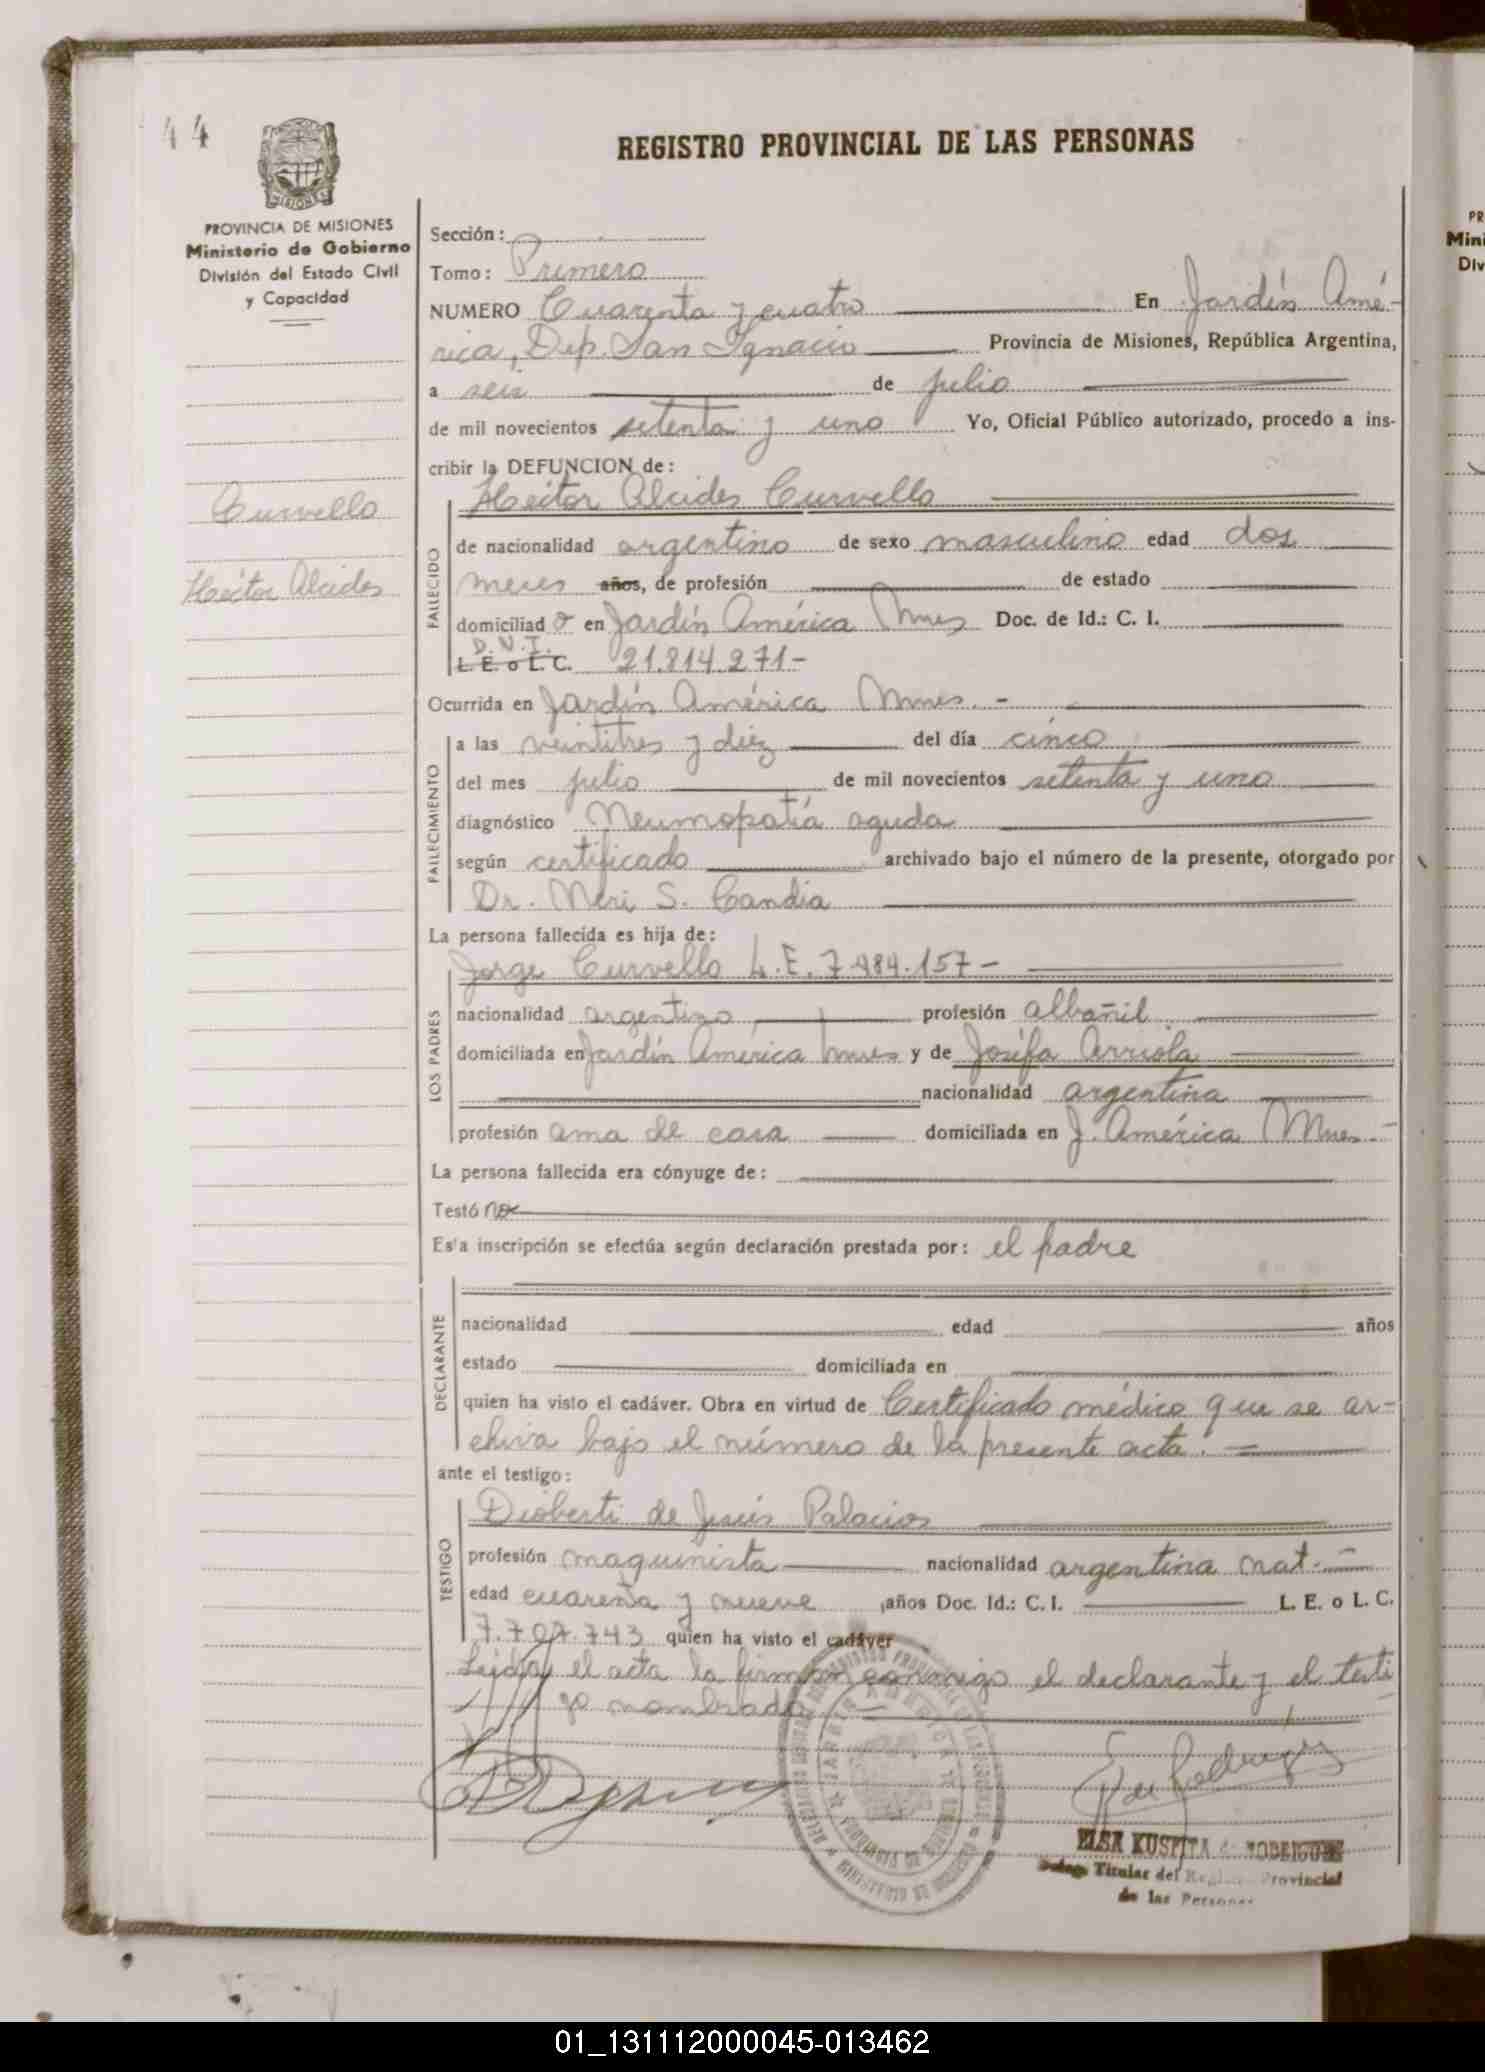 44
REGISTRO PROVINCIAL DE LAS PERSONAS
MISIONES
PROVINCIA DE MISIONES
Ministerio de Gobierno
División del Estado Civil
y Capacidad
Curvello
Héctor Alcides
Sección:
Tomo: Primero
NUMERO Cuarenta y cuatro En Jardín Amé-
rica, Dep. San Ignacio Provincia de Misiones, República Argentina,
a seis de julio
de mil novecientos setenta y uno Yo, Oficial Público autorizado, procedo a ins-
cribir la DEFUNCION de:
Héctor Alcides Curvello
FALLECIDO
de nacionalidad argentino de sexo masculino edad dos
meses años, de profesión de estado
domiciliad o en Jardín América Mnes Doc. de Id.: C. I.
D.N.I.
L. E. o L. C. 21.814.271-
Ocurrida en Jardín América Mnes. -
FALLECIMIENTO
a las veintitres y diez del día cinco
del mes julio de mil novecientos setenta y uno
diagnóstico Neumopatía aguda
según certificado archivado bajo el número de la presente, otorgado por
Dr. Neri S. Candia
La persona fallecida es hija de:
Jorge Curvello L.E. 7.484.157-
LOS PADRES
nacionalidad argentino profesión albañil
domiciliada en Jardín América Mnes y de Josefa Arriola
nacionalidad argentina
profesión ama de casa domiciliada en J. América Mnes.-
La persona fallecida era cónyuge de:
Testó no
Esta inscripción se efectúa según declaración prestada por: el padre
DECLARANTE
nacionalidad edad años
estado domiciliada en
quien ha visto el cadáver. Obra en virtud de Certificado médico que se ar-
chiva bajo el número de la presente acta.
ante el testigo:
Dioberti de Jesús Palacios
TESTIGO
profesión maquinista nacionalidad argentina nat.-
edad cuarenta y nueve ,años Doc. Id.: C. I. L. E. o L. C.
7.707.743 quien ha visto el cadáver
Leida el acta la firman conmigo el declarante y el testi
go nombrado.
ELSA KUSPITA de RODRIGUEZ
Titular del Registro Provincial
de las Personas
PR
Mini
Div
01_131112000045-013462